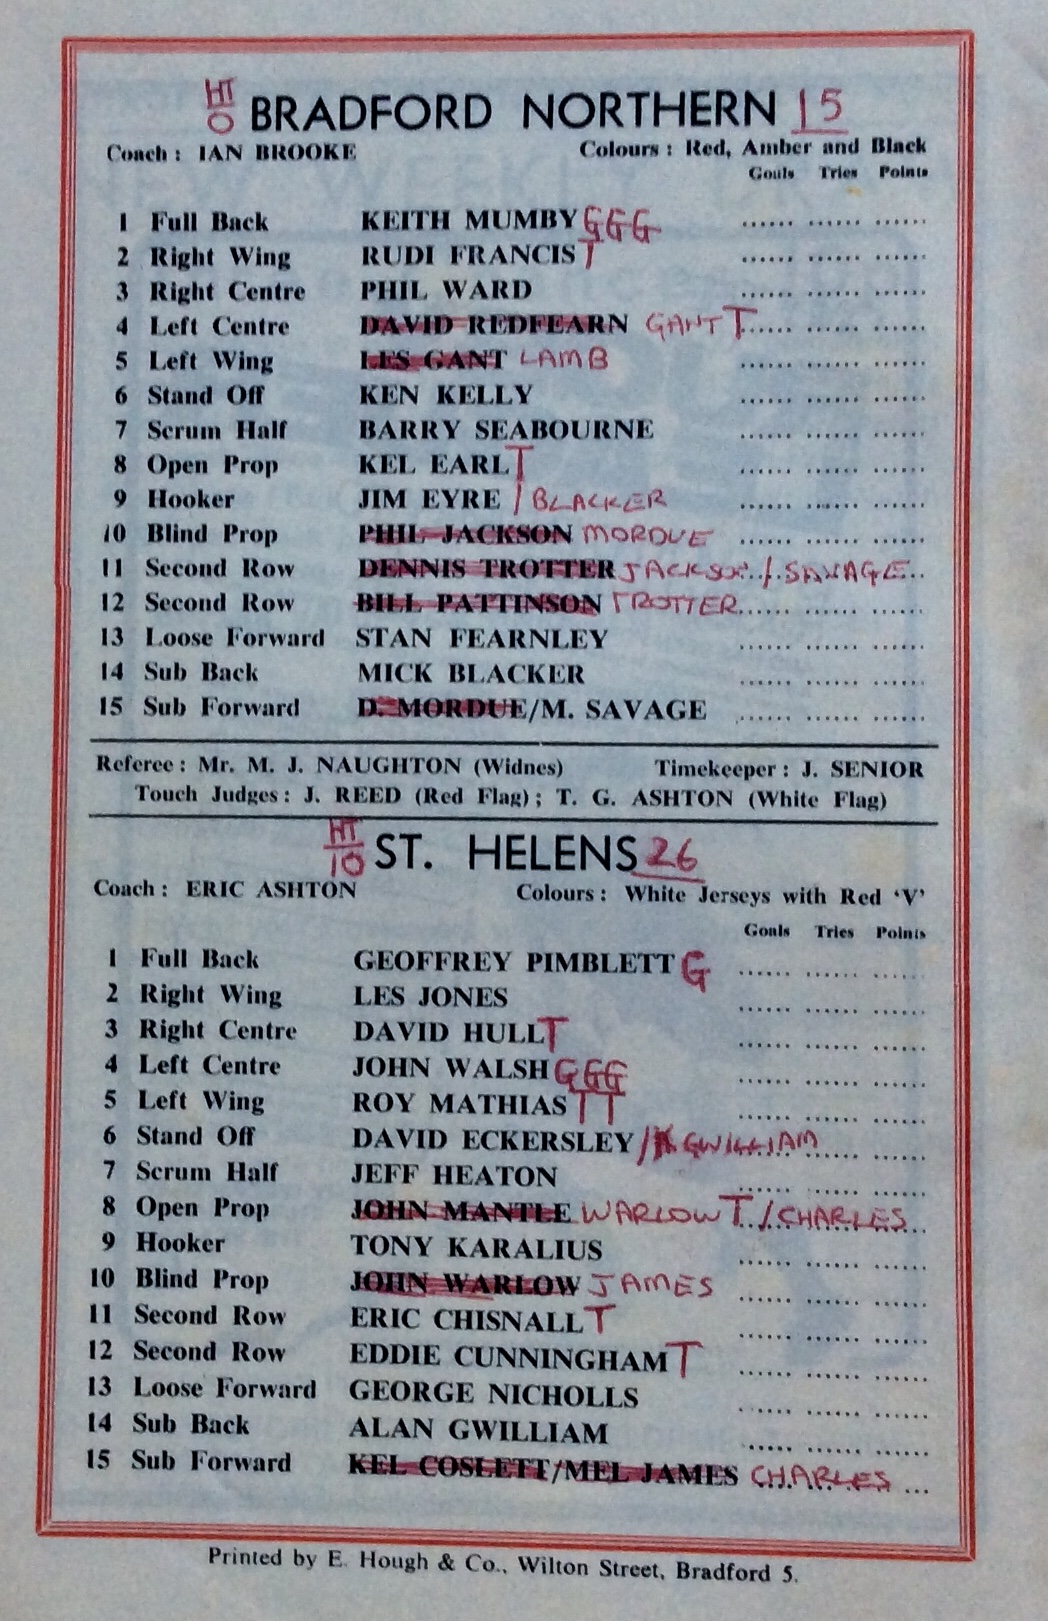 HT
0 BRADFORD NORTHERN 15
Coach : IAN BROOKE Colours : Red, Amber and Black
Goals Tries Points
1 Full Back KEITH MUMBY GGG ...... ...... ......
2 Right Wing RUDI FRANCIS T ...... ...... ......
3 Right Centre PHIL WARD ...... ...... ......
4 Left Centre DAVID REDFEARN GANT T ...... ...... ......
5 Left Wing LES GANT LAMB ...... ...... ......
6 Stand Off KEN KELLY ...... ...... ......
7 Scrum Half BARRY SEABOURNE ...... ...... ......
8 Open Prop KEL EARL T ...... ...... ......
9 Hooker JIM EYRE / BLACKER ...... ...... ......
10 Blind Prop PHIL JACKSON MORDUE ...... ...... ......
11 Second Row DENNIS TROTTER JACKSON / SAVAGE
12 Second Row BILL PATTINSON TROTTER ...... ...... ......
13 Loose Forward STAN FEARNLEY ...... ...... ......
14 Sub Back MICK BLACKER ...... ...... ......
15 Sub Forward D. MORDUE/M. SAVAGE ...... ...... ......
Referee : Mr. M. J. NAUGHTON (Widnes) Timekeeper : J. SENIOR
Touch Judges : J. REED (Red Flag) ; T. G. ASHTON (White Flag)
HT
10 ST. HELENS 26
Coach : ERIC ASHTON Colours : White Jerseys with Red ‘V’
Goals Tries Points
1 Full Back GEOFFREY PIMBLETT G ...... ...... ......
2 Right Wing LES JONES ...... ...... ......
3 Right Centre DAVID HULL T ...... ...... ......
4 Left Centre JOHN WALSH GGG ...... ...... ......
5 Left Wing ROY MATHIAS TT ...... ...... ......
6 Stand Off DAVID ECKERSLEY / GWILLIAM ...... ......
7 Scrum Half JEFF HEATON ...... ...... ......
8 Open Prop JOHN MANTLE WARLOW T / CHARLES
9 Hooker TONY KARALIUS ...... ...... ......
10 Blind Prop JOHN WARLOW JAMES ...... ...... ......
11 Second Row ERIC CHISNALL T ...... ...... ......
12 Second Row EDDIE CUNNINGHAM T ...... ...... ......
13 Loose Forward GEORGE NICHOLLS ...... ...... ......
14 Sub Back ALAN GWILLIAM ...... ...... ......
15 Sub Forward KEL COSLETT/MEL JAMES CHARLES ...
Printed by E. Hough & Co., Wilton Street, Bradford 5.